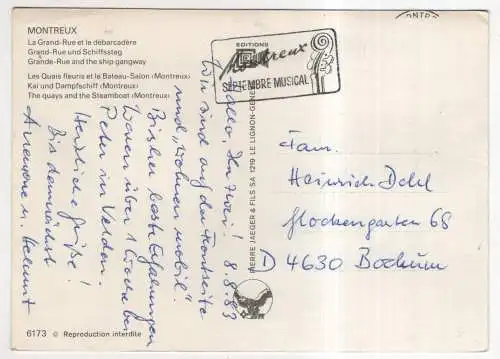 MONTREUX
La Grand-Rue et le débarcadère
Grand-Rue und Schiffssteg
Grande-Rue and the ship gangway
Les Quais fleuris et le Bateau-Salon ‹Montreux›
Kai und Dampfschiff ‹Montreux›
The quays and the Steamboat ‹Montreux›
EDITIONS
Montreux
SEPTEMBRE MUSICAL
8.8.83
Hallo, Ihr zwei!
Wir sind auf der Frontseite
und "wohnen mobil".
Bisher beste Erfahrungen
Waren über 1 Woche bei
Peter in Velden.
Herzliche Grüße!
Bis demnächst
Annegret u. Helmut
PIERRE JAEGER & FILS SA 1219 LE LIGNON-GENÈ
Fam.
Heinrich Dohl
Glockengarten 68
D 4630 Bochum
6173 © Reproduction interdite